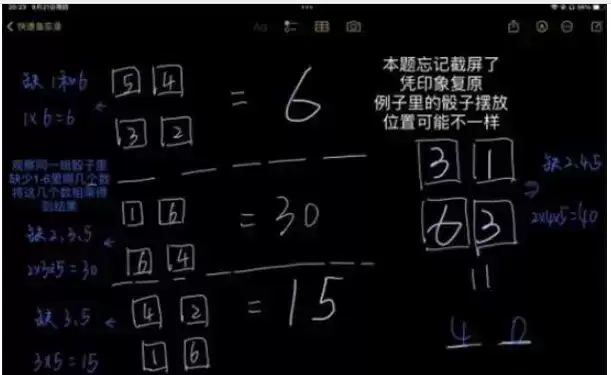 20:23 9月21日周四
快速备忘录
Aa
本题忘记截屏了
凭印象复原
例子里的骰子摆放
位置可能不一样
缺1和6
1×6=6
5 4
3 2
= 6
观察同一组骰子里
缺少1-6里哪几个数
将这几个数相乘得
到结果
缺2,3,5
2×3×5=30
1 6
6 4
= 30
缺3,5
3×5=15
4 2
1 6
= 15
3 1
6 3
缺2,4,5
2×4×5=40
4 0